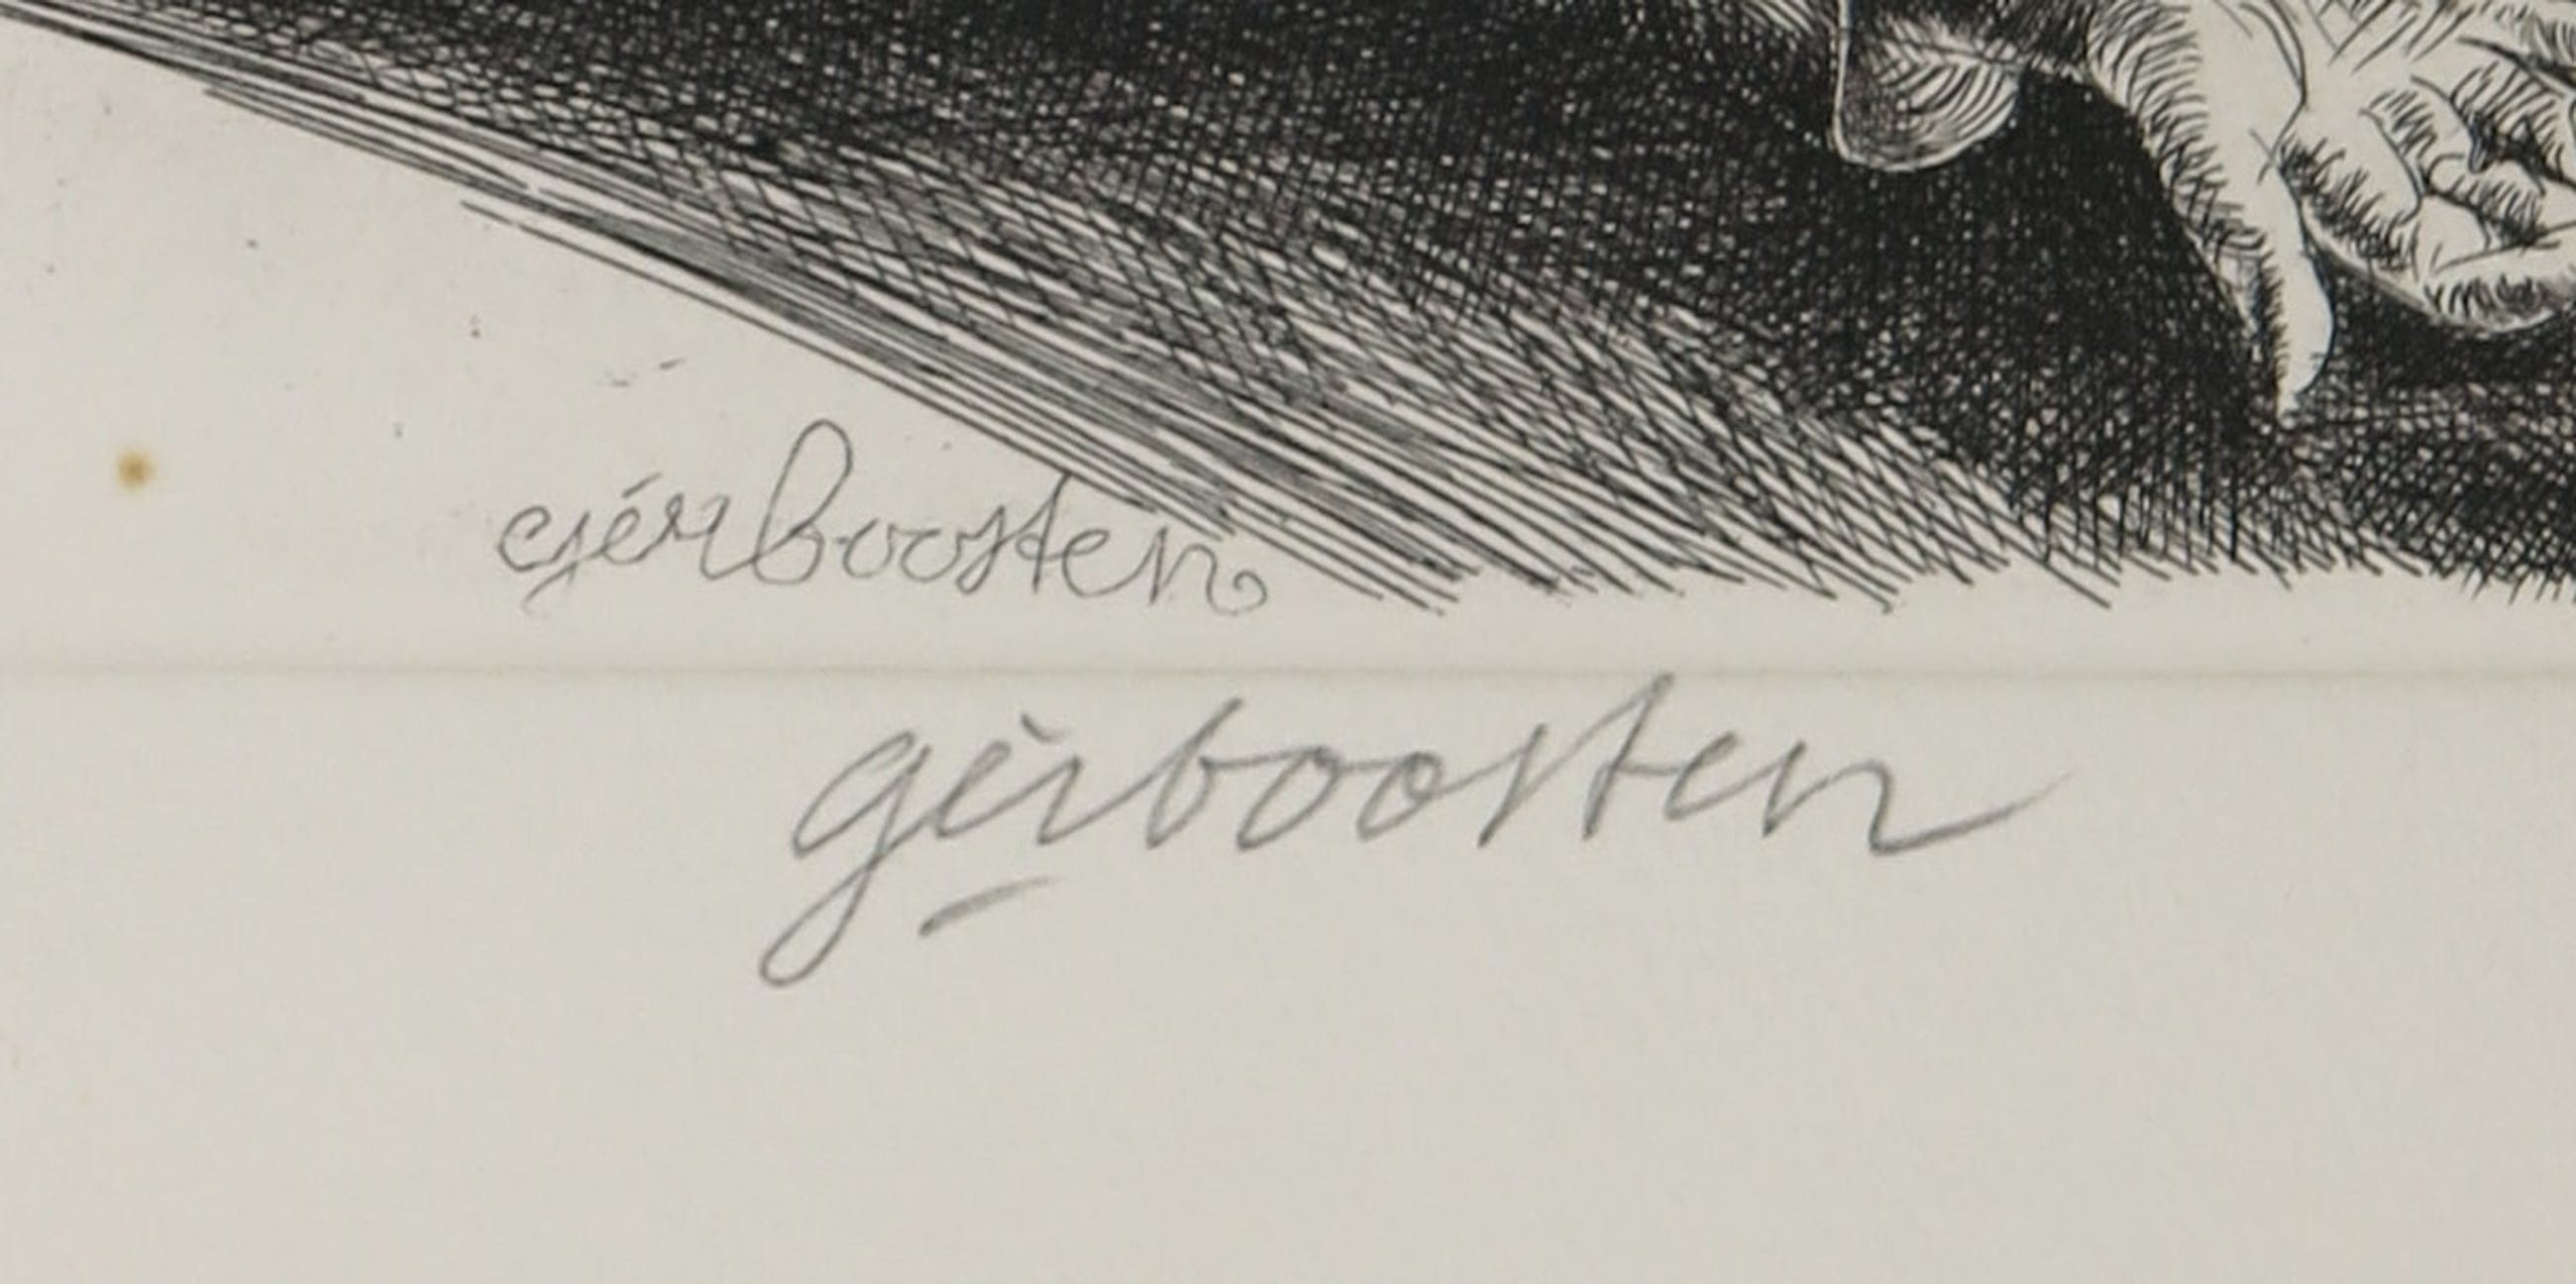 gérboosten
gèrboosten